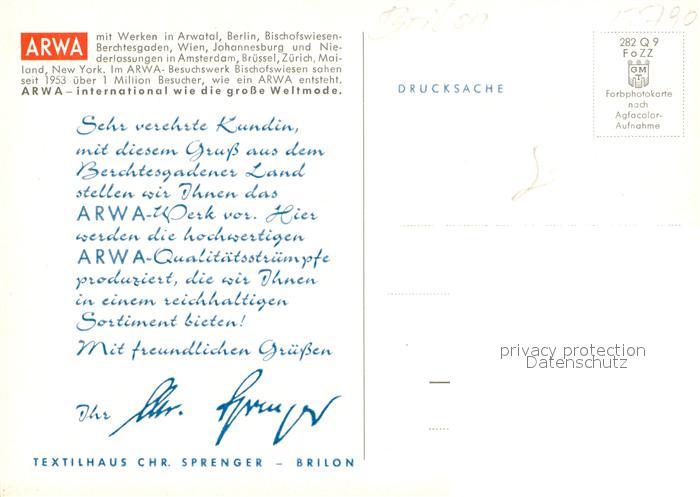 ARWA mit Werken in Arwatal, Berlin, Bischofswiesen-
Berchtesgaden, Wien, Johannesburg und Nie-
derlassungen in Amsterdam, Brüssel, Zürich, Mai-
land, New York. Im ARWA- Besuchswerk Bischofswiesen sahen
seit 1953 über 1 Million Besucher, wie ein ARWA entsteht.
ARWA – international wie die große Weltmode.
Sehr verehrte Kundin,
mit diesem Gruß aus dem
Berchtesgadener Land
stellen wir Ihnen das
ARWA-Werk vor. Hier
werden die hochwertigen
ARWA-Qualitätsstrümpfe
produziert, die wir Ihnen
in einem reichhaltigen
Sortiment bieten!
Mit freundlichen Grüßen
Ihr Chr. Sprenger
TEXTILHAUS CHR. SPRENGER – BRILON
Brilon
DRUCKSACHE
282 Q 9
FoZZ
GM
Farbphotokarte
nach
Agfacolor-
Aufnahme
privacy protection
Datenschutz